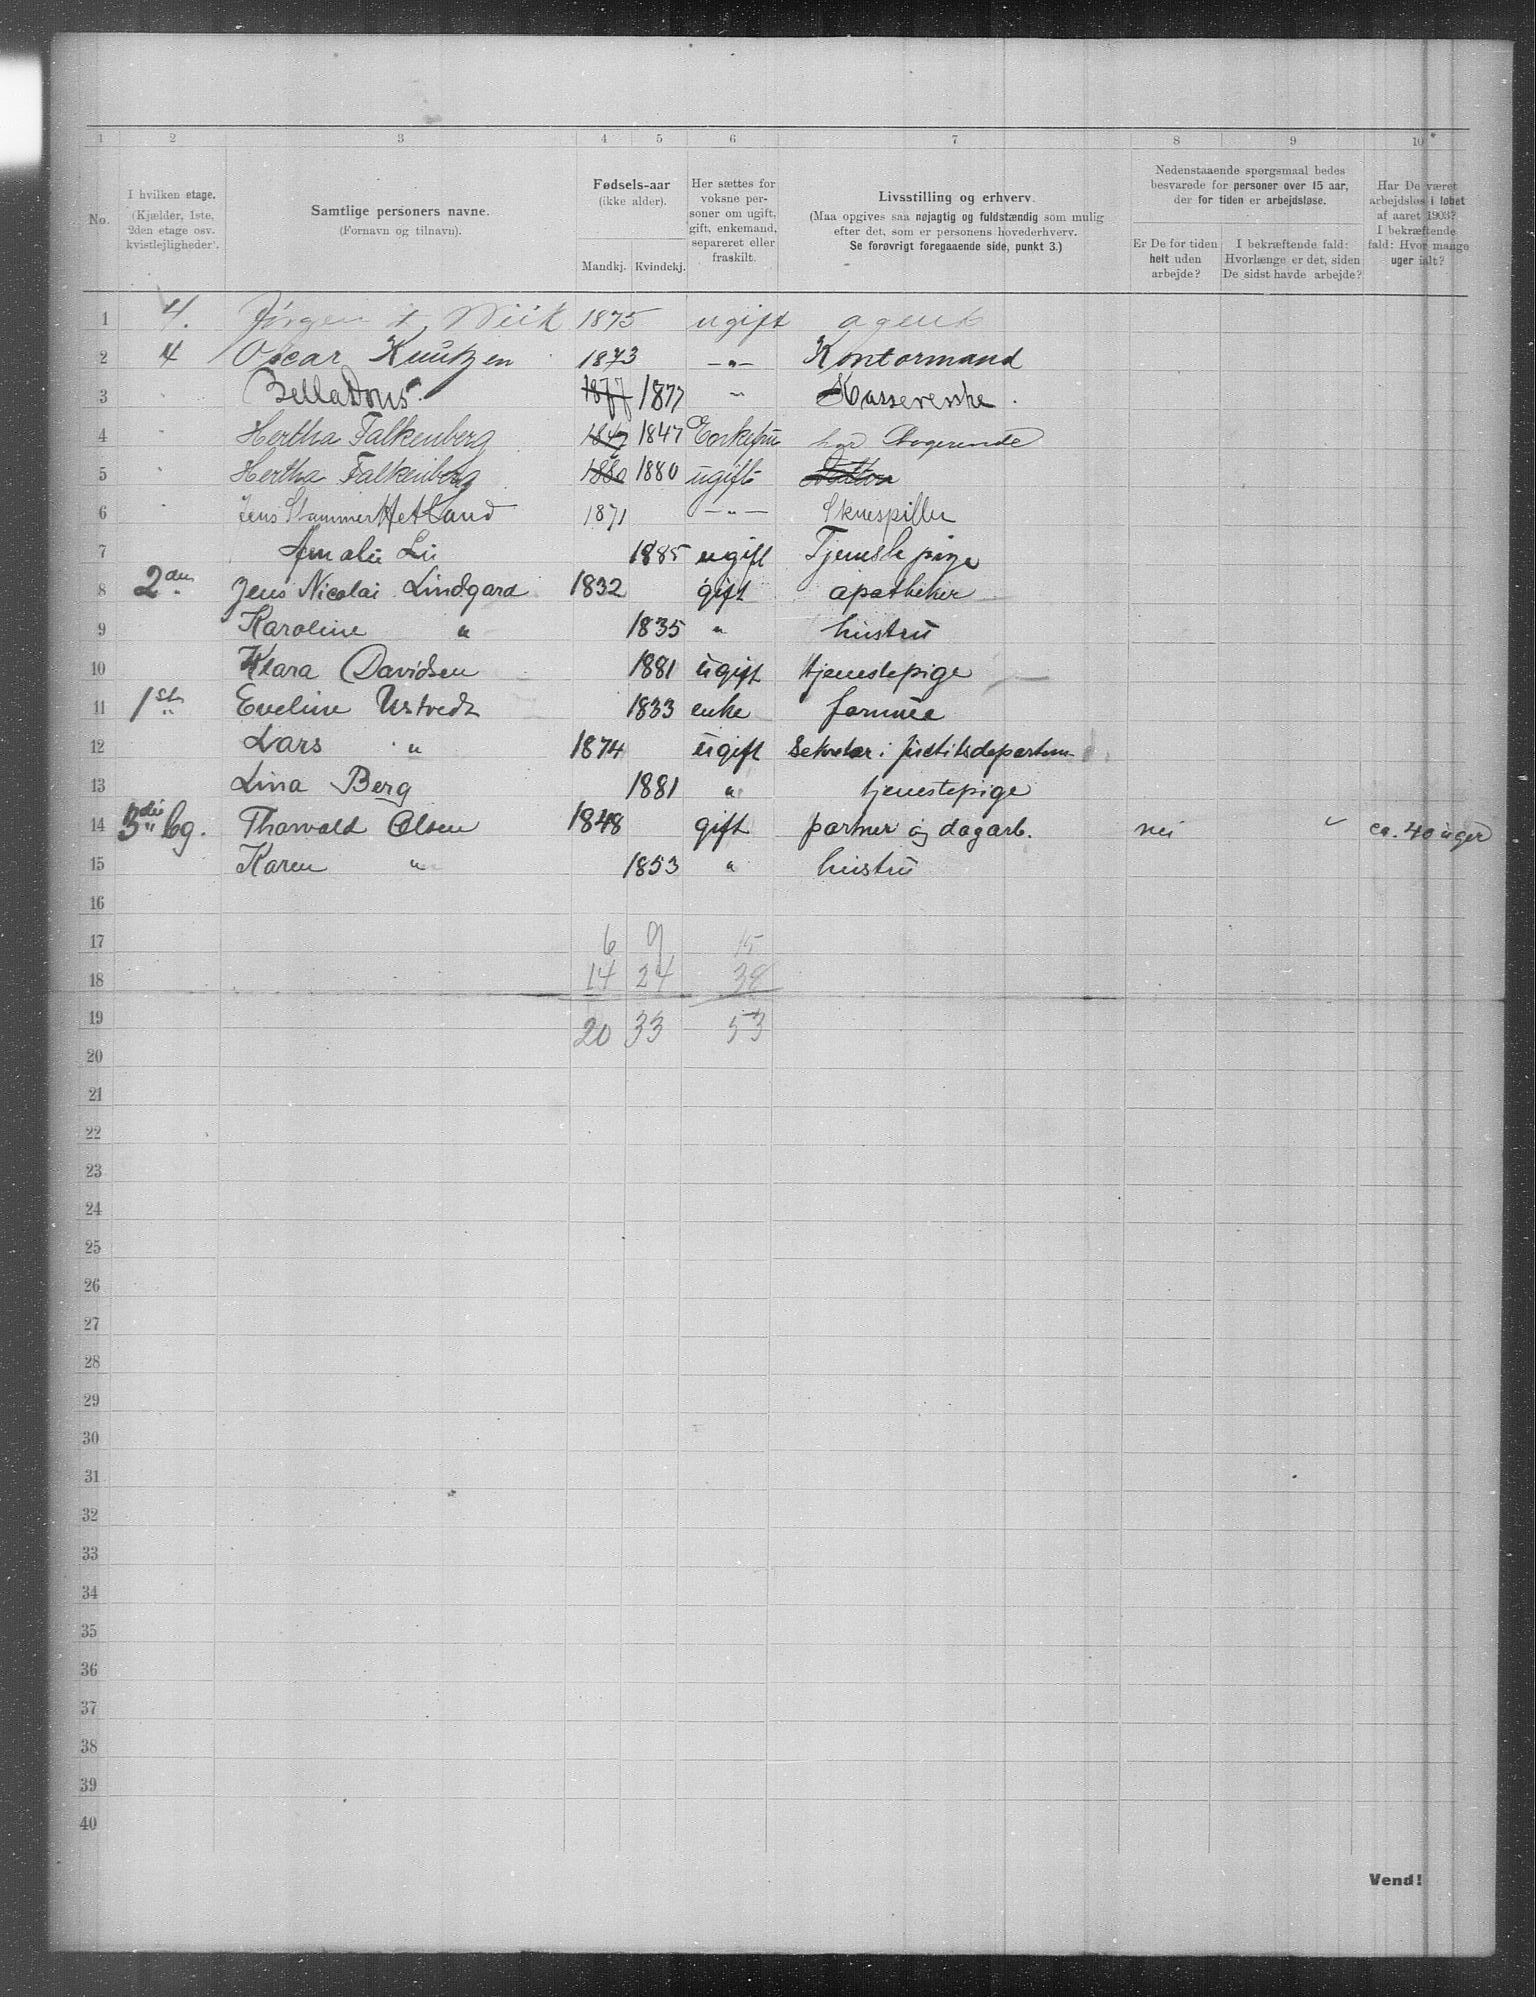 1 2 3 4 5 6 7 8 9 10
No.
I hvilken etage.
(Kjælder, 1ste,
2den etage osv.
kvistlejligheder).
Samtlige personers navne.
(Fornavn og tilnavn).
Fødsels-aar
(ikke alder).
Mandkj. Kvindekj.
Her sættes for
voksne per-
soner om ugift,
gift, enkemand,
separeret eller
fraskilt.
Livsstilling og erhverv.
(Maa opgives saa nøjagtig og fuldstændig som mulig
efter det, som er personens hovederhverv.
Se forøvrigt foregaaende side, punkt 3.)
Nedenstaaende spørgsmaal bedes
besvarede for personer over 15 aar,
der for tiden er arbejdsløse.
Er De for tiden
helt uden
arbejde?
I bekræftende fald:
Hvorlænge er det, siden
De sidst havde arbejde?
Har De været
arbejdsløs i løbet
af aaret 1903?
I bekræftende
fald: Hvor mange
uger ialt?
1 4. Jørgen Wiik 1875 ugift agent
2 4 Oscar Knutzen 1873 -"- Kontormand
3 " Bella Dons 1877 1877 " Kassererske.
4 " Hertha Falkenberg 1847 1847 Enkefru har Logerende
5 " Hertha Falkenberg 1880 1880 ugift
6 " Jens Stammer Hetland 1871 -"- Skuespiller
7 Amalie Lie 1885 ugift Tjenestepige
8 2den Jens Nicolai Lindgard 1832 gift apotheker
9 Karoline " 1835 " hustru
10 Klara Davidsen 1881 ugift tjenestepige
11 1ste Eveline Ustvedt 1833 enke formue
12 Lars " 1874 ugift Sekretær i justitsdepartem.
13 Lina Berg 1881 " tjenestepige
14 3die bg. Thorvald Olsen 1848 gift partner og dagarb. nei ca. 40 uger
15 Karen " 1853 " hustru
16
17 6 9 15
18 14 24 38
19 20 33 53
20
21
22
23
24
25
26
27
28
29
30
31
32
33
34
35
36
37
38
39
40
Vend!